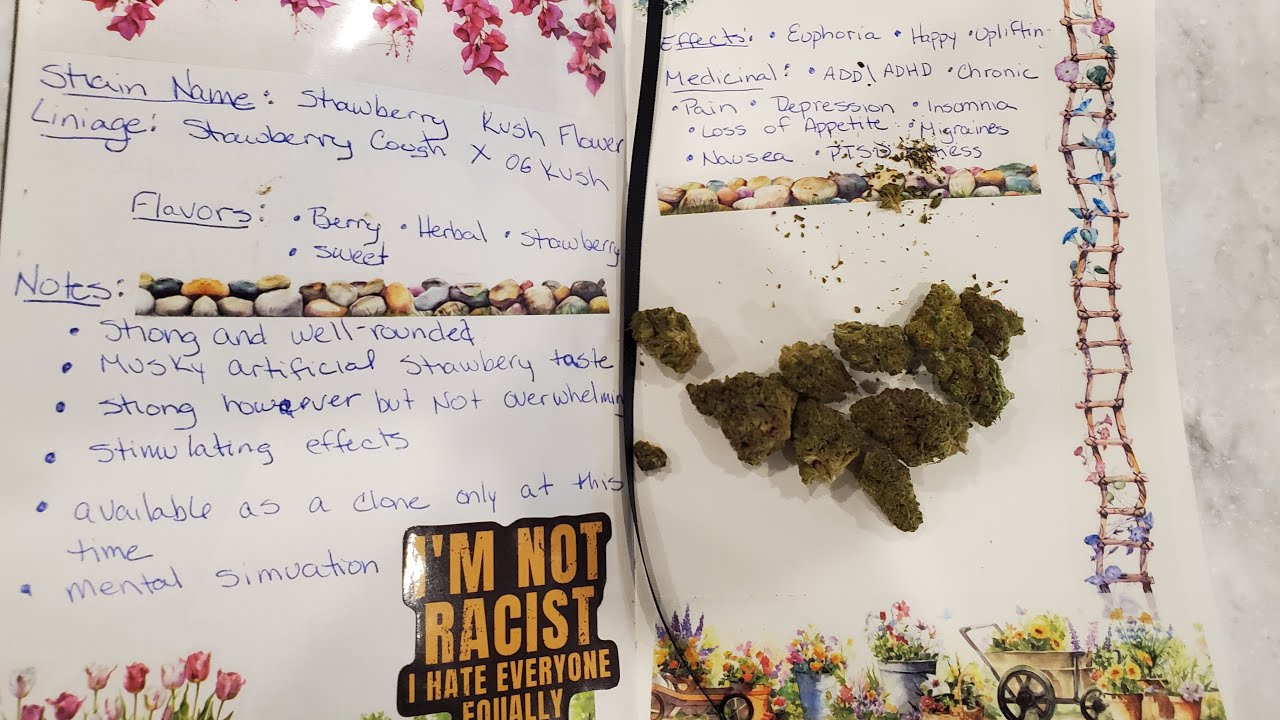 Strain Name: Strawberry Kush Flower
Liniage: Strawberry Cough X OG Kush
Flavors: • Berry • Herbal • Strawberry
• sweet
Notes:
• Strong and well-rounded
• Musky artificial Strawbery taste
• Strong however but Not overwhelmin
• Stimulating effects
• available as a clone only at this
time
• mental simuation
I'M NOT
RACIST
I HATE EVERYONE
EQUALLY
Effects: • Euphoria • Happy • Upliftin
Medicinal: • ADD\ADHD • Chronic
• Pain • Depression • Insomnia
• Loss of Appetite • Migraines
• Nausea • PTSD